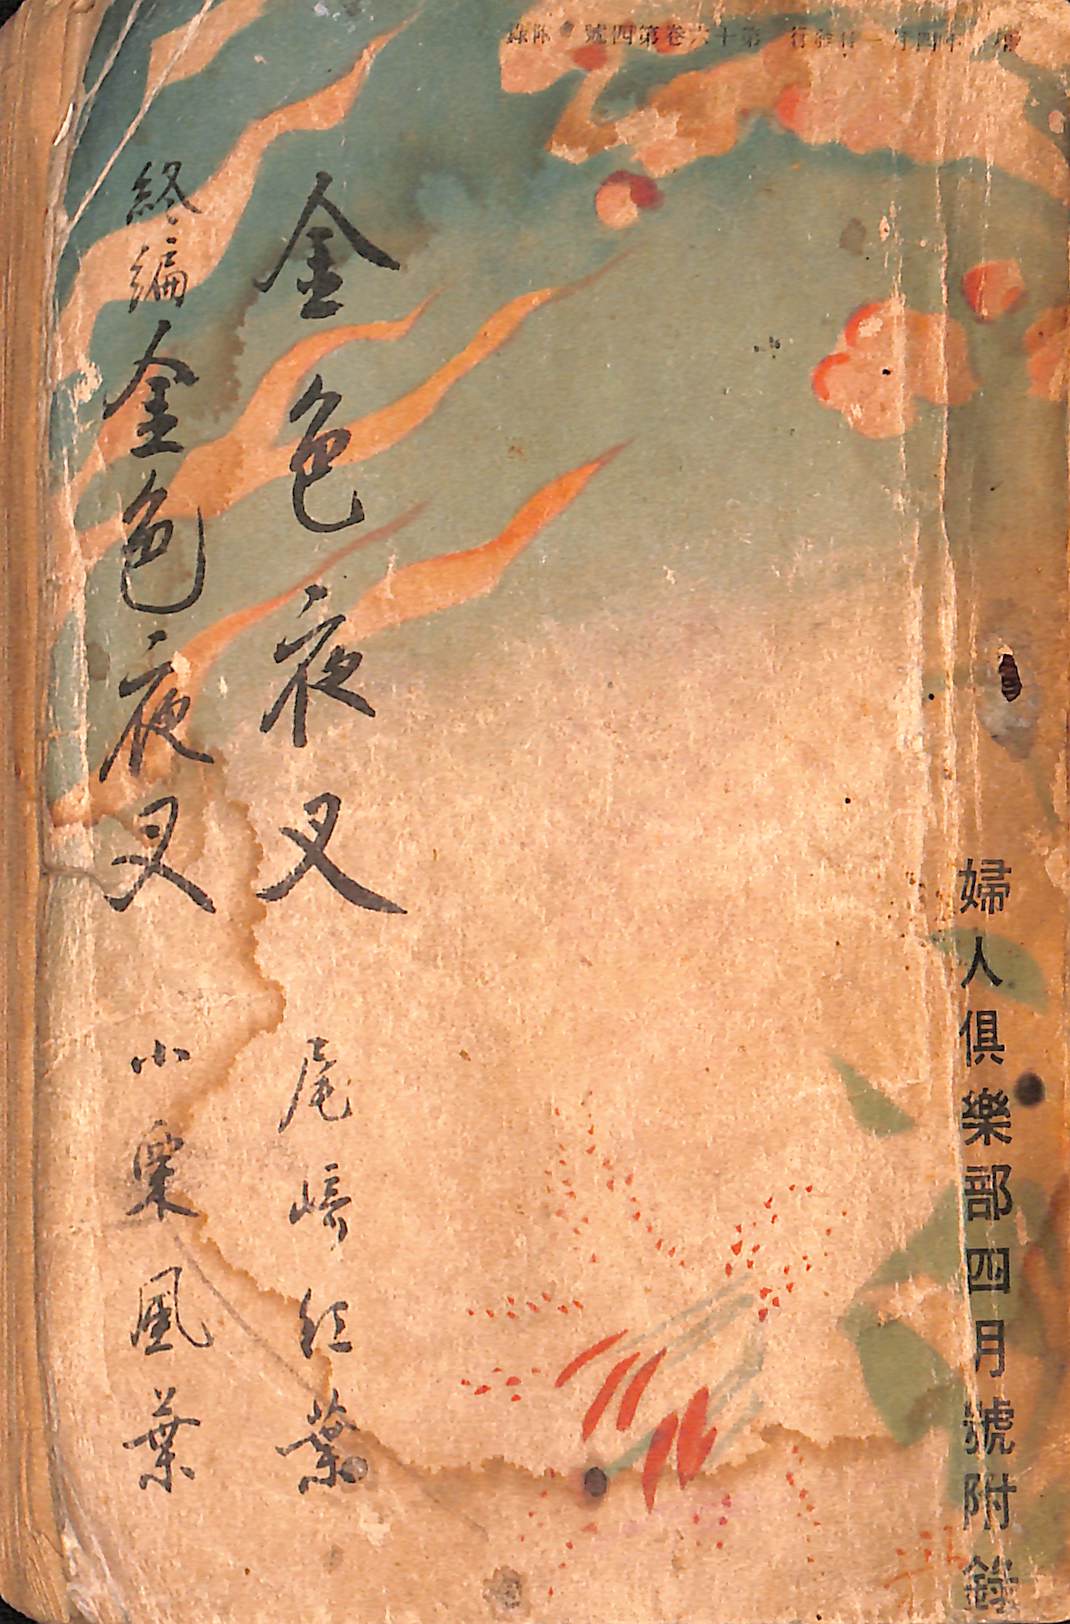 第十六卷第四號 附錄
婦人俱樂部四月號附錄
金色夜叉 尾崎紅葉
終編 金色夜叉 小栗風葉